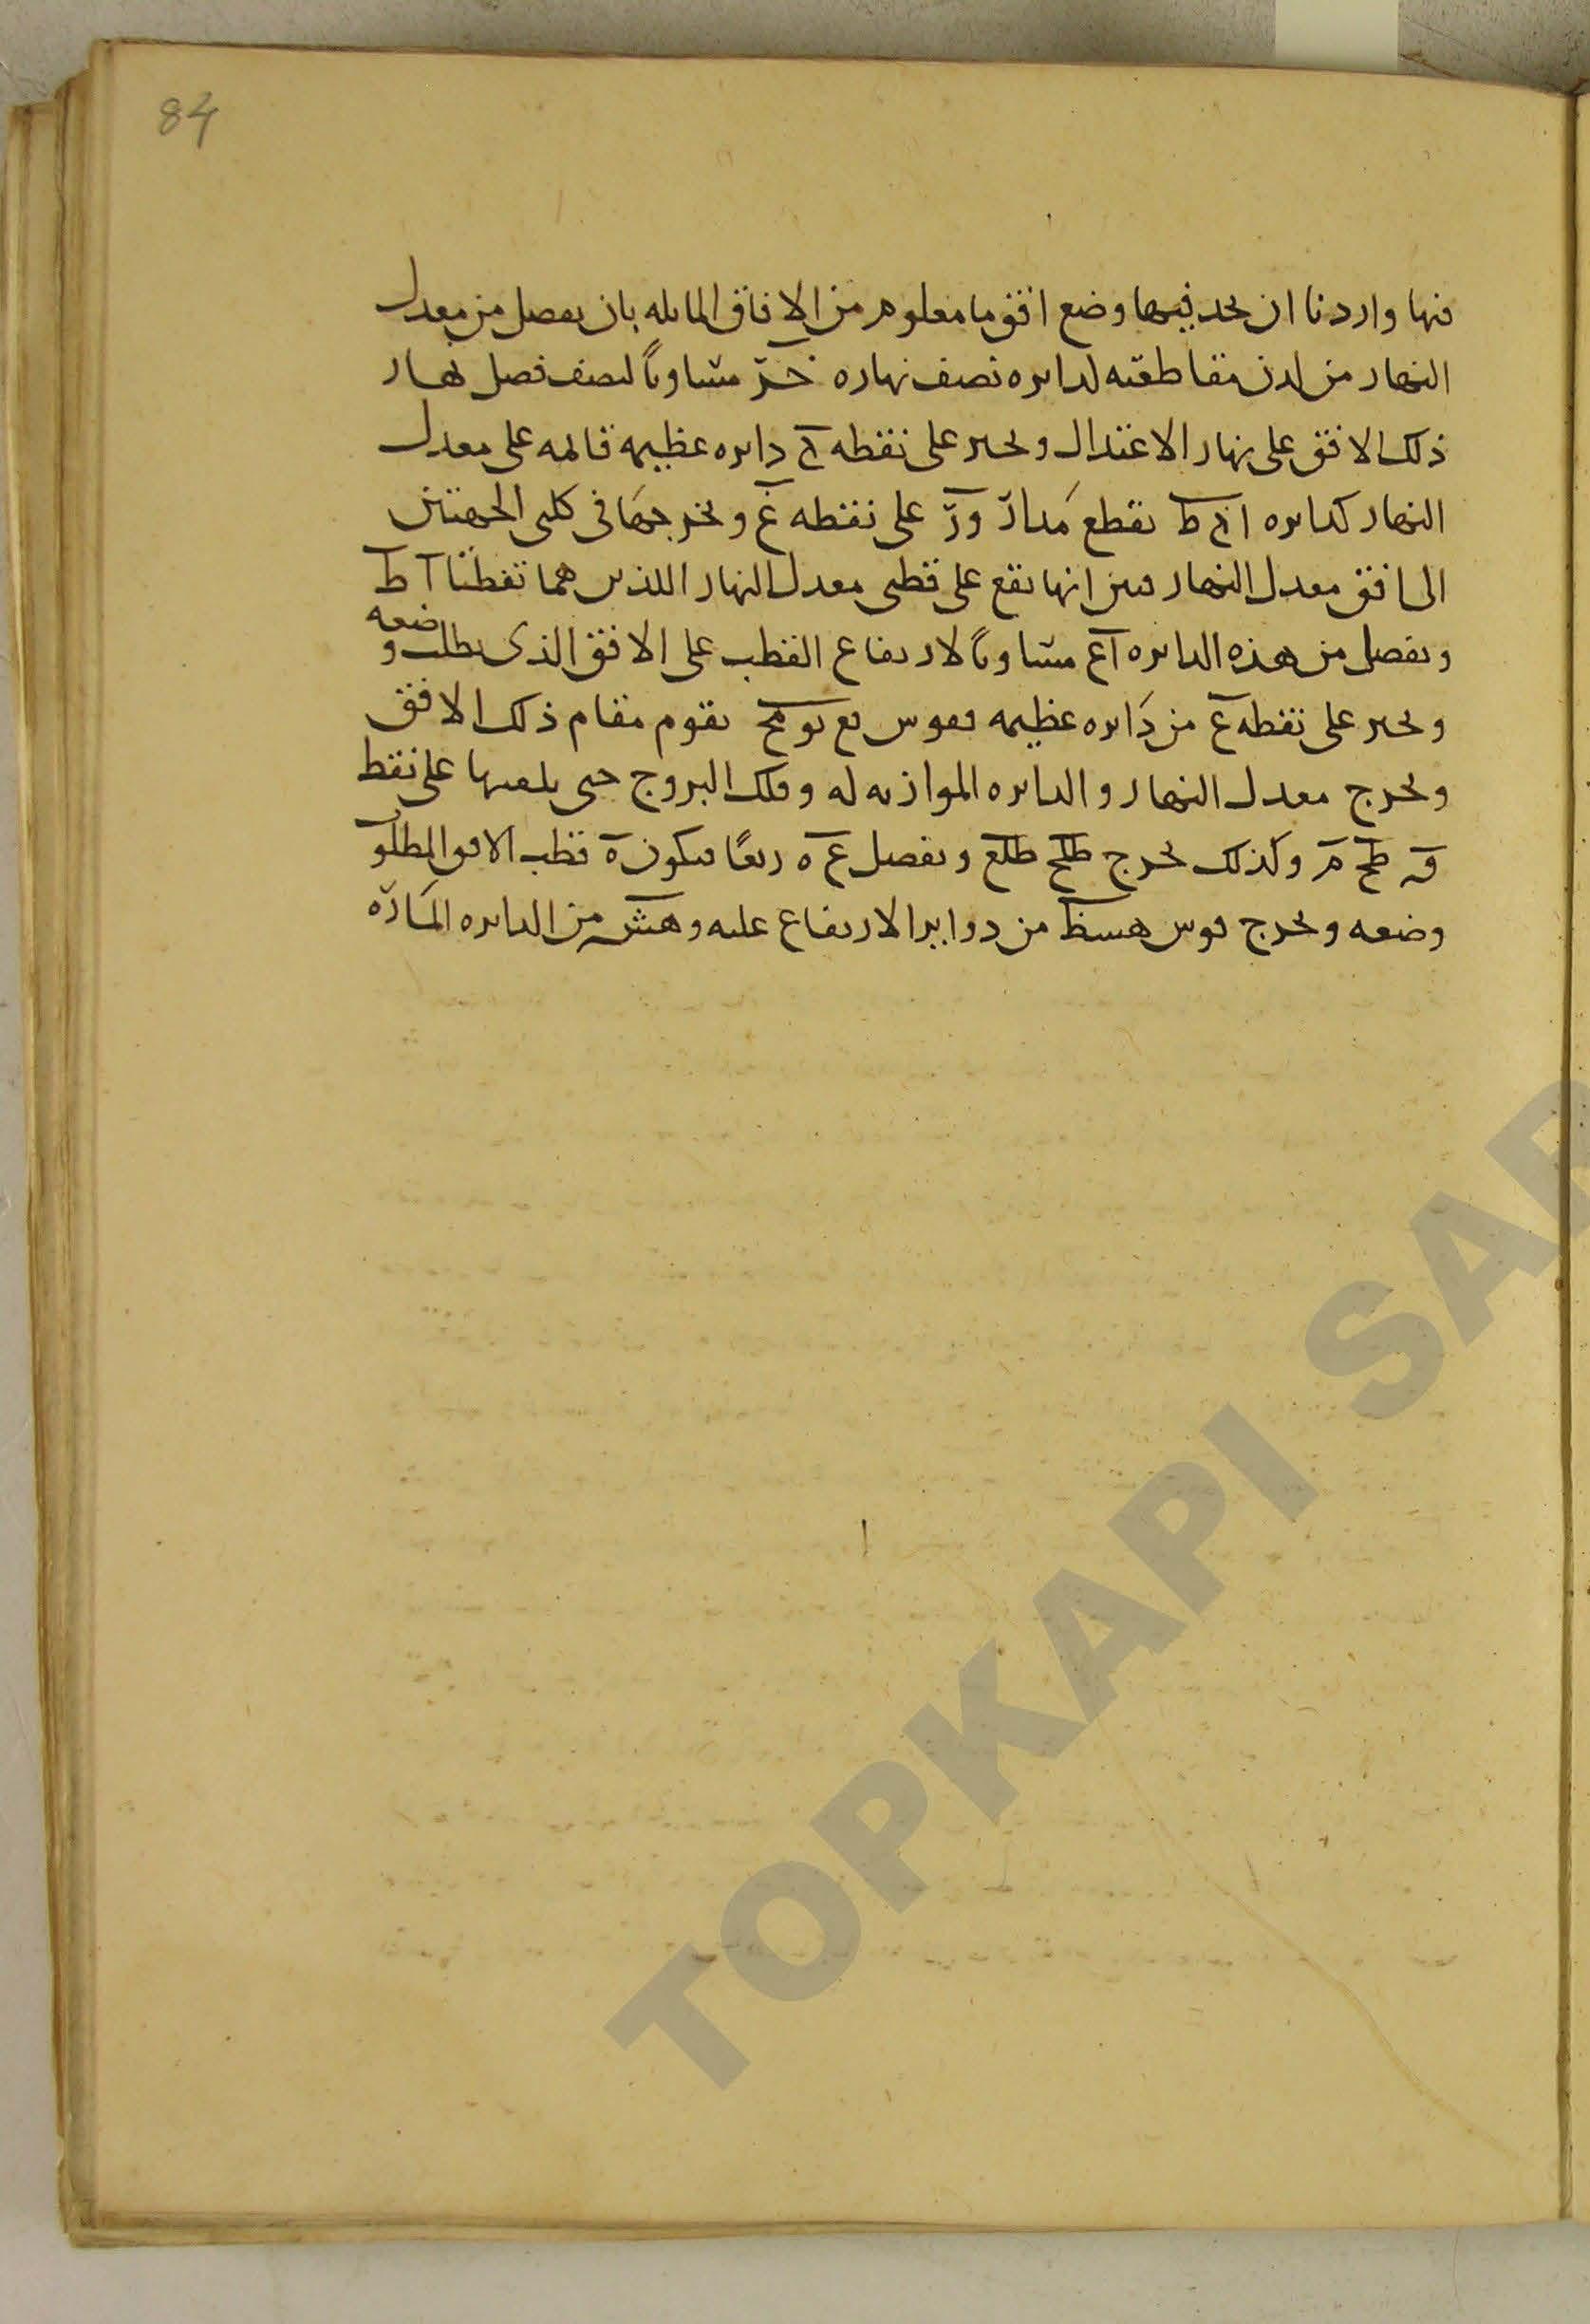 84
فيها واردنا ان نجد فيها وضع افق ما معلوم من الافاق المايله بان نفصل من معدل
النهار من لدن مقاطعته لدايره نصف نهاره مساويًا لنصف فصل نهار
ذلك الافق على نهار الاعتدال ونجيز على نقطه ح دايره عظيمه قايمه على معدل
النهار كدايره ا ح ط نقطع على نقطه ع ونخرجها في كلتى الجهتين
الى افق معدل النهار فبين انها تقع على قطبى معدل النهار اللذين هما نقطتا ا ط
ونفصل من هذه الدايره ا ع مساويًا لارتفاع القطب على الافق الذى نطلب وضعه
ونجيز على نقطه ع من دايره عظيمه قوس تقوم مقام ذلك الافق
ونخرج معدل النهار والدايره الموازيه له وفلك البروج حتى يلقيها على نقط
وكذلك نخرج ونفصل ع ه ربعًا فيكون ه قطب الافق المطلو
وضعه ونخرج قوس من دواير الارتفاع عليه من الدايره المارّه
TOPKAPI SAR